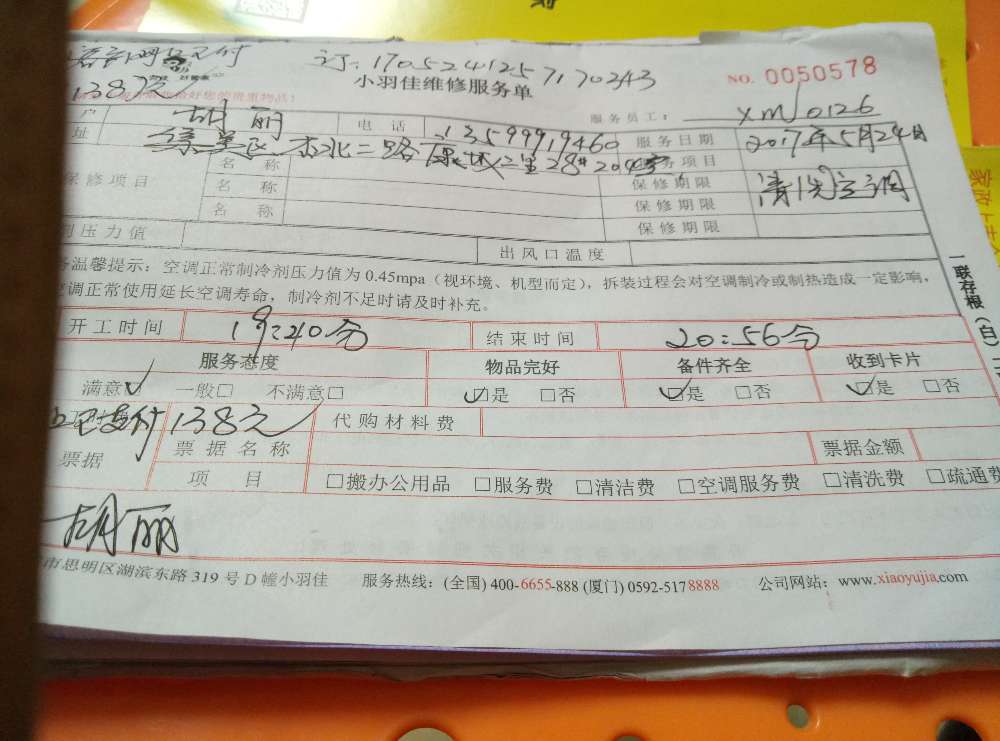 已付 订:170524125717 0343
138元 小羽佳维修服务单 NO. 0050578
服务员工: XMJ0126
户 胡丽 电话 13599919460 服务日期 2017年5月24日
址 北二路 28# 204 服务项目 清洗空调
保修项目 名称 保修期限
名称 保修期限
名称 保修期限
剂压力值 出风口温度
温馨提示:空调正常制冷剂压力值为0.45mpa(视环境、机型而定),拆装过程会对空调制冷或制热造成一定影响,
空调正常使用延长空调寿命,制冷剂不足时请及时补充。
一联存根(白)
开工时间 19:40分 结束时间 20:56分
服务态度 物品完好 备件齐全 收到卡片
满意✓ 一般□ 不满意□ ☑是 □否 ☑是 □否 ☑是 □否
已支付138元 代购材料费
票据 票据名称 票据金额
项目 □搬办公用品 □服务费 □清洁费 □空调服务费 □清洗费 □疏通费
胡丽
市思明区湖滨东路319号D幢小羽佳 服务热线:(全国)400-6655-888 (厦门)0592-5178888 公司网站:www.xiaoyujia.com